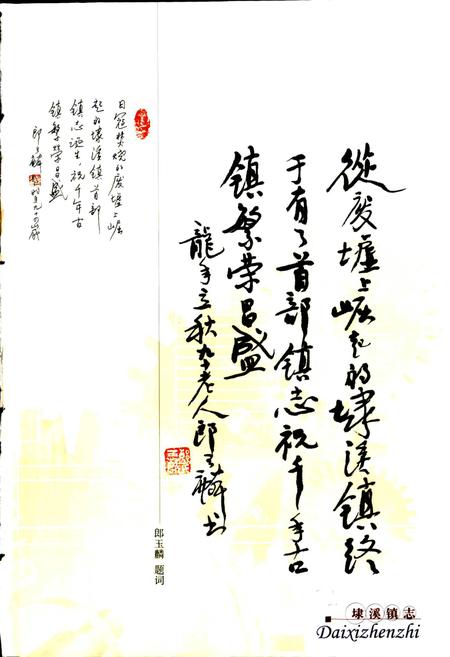 從废墟上崛起的埭溪镇终
于有了首部镇志祝千年古
镇繁荣昌盛
龍年立秋九十老人郎玉麟书
日寇焚烧的废墟上崛
起的埭溪镇首部
镇志诞生，祝千年古
镇繁荣昌盛
郎玉麟
时年九十四岁
郎玉麟 题词
埭溪镇志
Daixizhenzhi